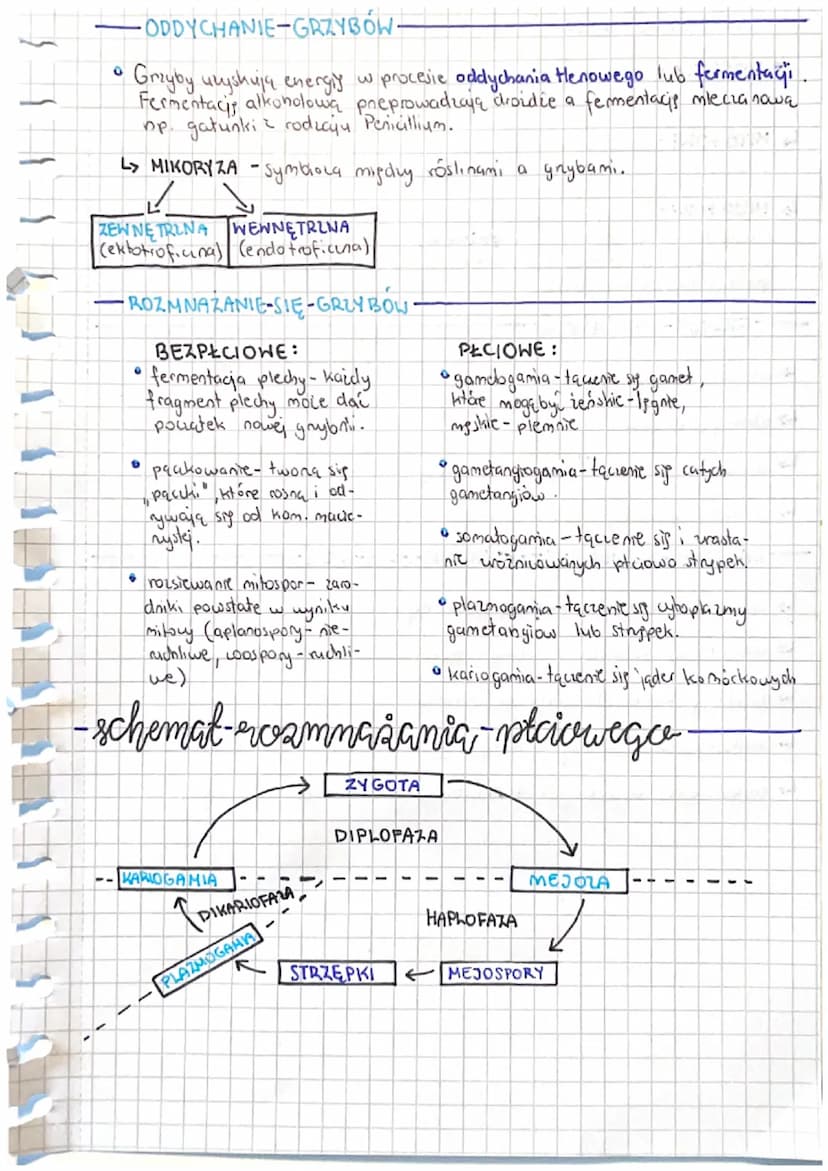 ODDYCHANIE-GRZYBÓW
Grzyby uzyskują energię w procesie oddychania tlenowego lub fermentacji.
Fermentację alkoholową przeprowadzają drożdże a fermentację mleczanową
np. gatunki z rodzaju Penicillium.
↳ MIKORYZA - symbioza między roślinami a grzybami.
ZEWNĘTRZNA WEWNĘTRZNA
(ektotroficzna) (endotroficzna)
ROZMNAŻANIE-SIĘ-GRZYBÓW
BEZPŁCIOWE:
fermentacja plechy - każdy
fragment plechy może dać
początek nowej grzybni.
pączkowanie - tworzą się
„pączki", które rosną i od-
rywają się od kom. macie-
rzystej.
rozsiewanie mitospor - zaro-
dniki powstałe w wyniku
mitozy (aplanospory - nie-
ruchliwe, zoospory - ruchli-
we)
PŁCIOWE:
gametogamia - łączenie się gamet,
które mogą być żeńskie - lęgnie,
męskie - plemnie
gametangiogamia - łączenie się całych
gametangiów.
somatogamia - łączenie się i zrasta-
nie zróżnicowanych płciowo strzępek.
plazmogamia - łączenie się cytoplazmy
gametangiów lub strzępek.
kariogamia - łączenie się jąder komórkowych
-schemat-rozmnażania-płciowego
ZYGOTA
DIPLOFAZA
KARIOGAMIA
MEJOZA
DIKARIOFAZA
HAPLOFAZA
PLAZMOGAMIA
STRZĘPKI
MEJOSPORY